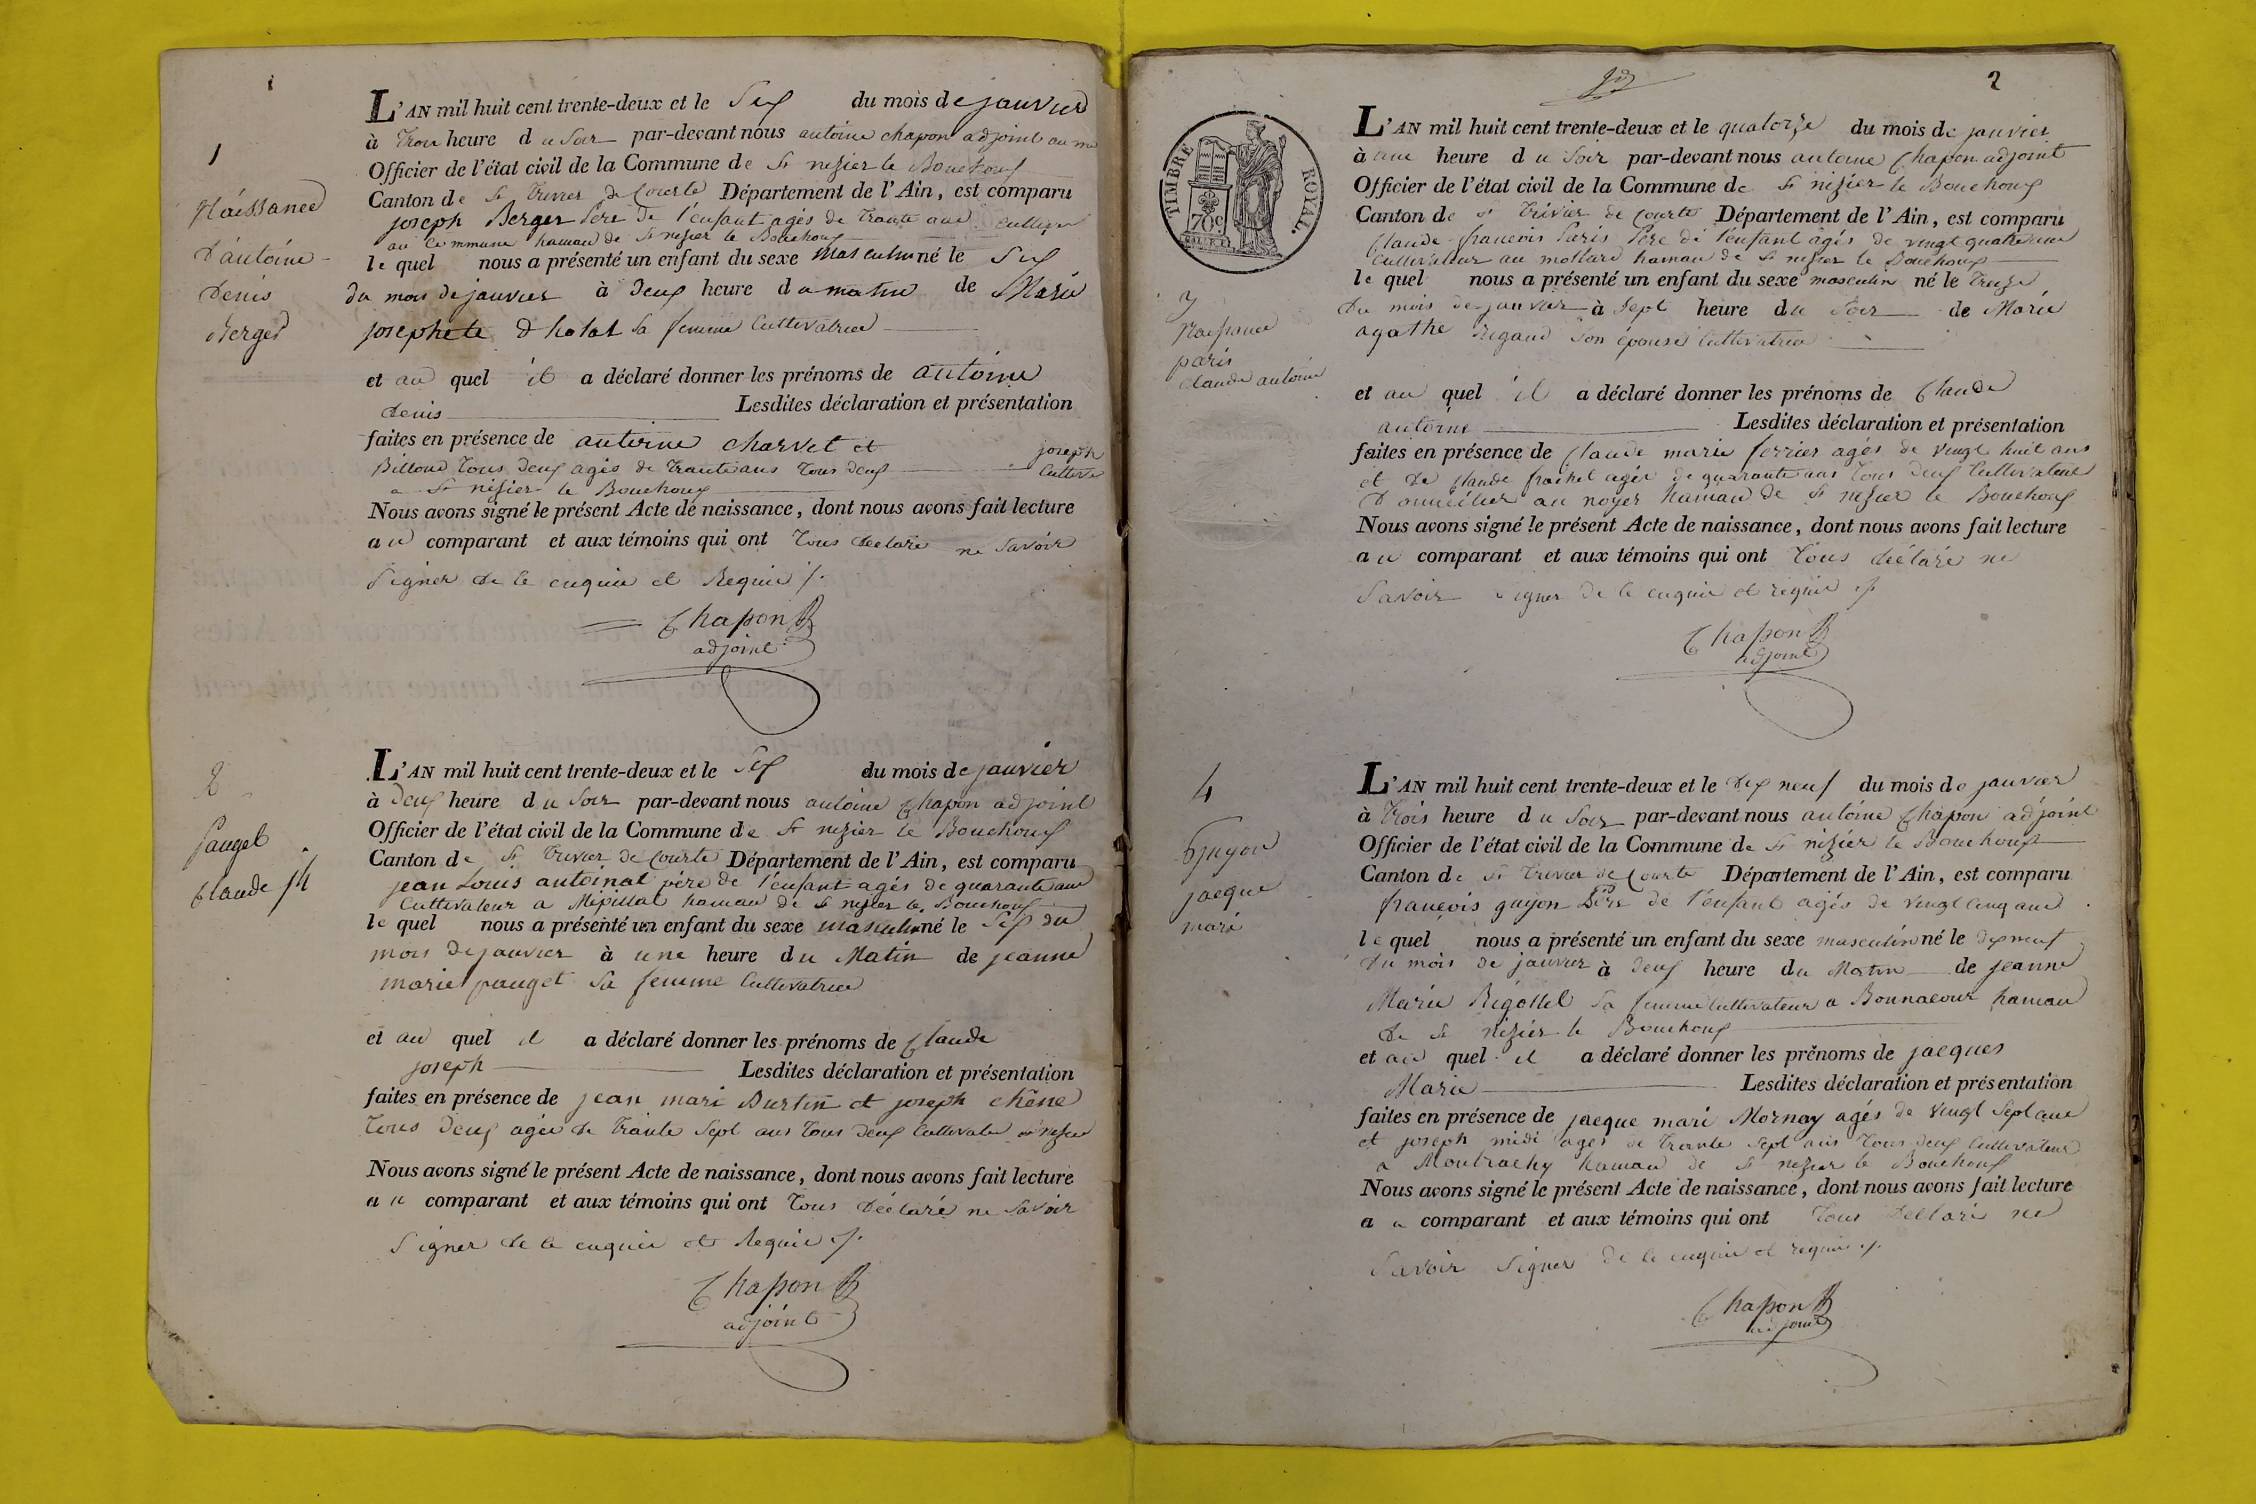 1
1
Naissance
D'antoine
Denis
Berger
L'AN mil huit cent trente-deux et le Six du mois de janvier
à trois heure du Soir par-devant nous antoine chapon adjoint au
Officier de l'état civil de la Commune de St nizier le Bouchoux
Canton de St trivier de Courte Département de l'Ain, est comparu
joseph Berger Père de l'enfant agés de trante ans
commune hameau de St nizier le Bouchoux
lequel nous a présenté un enfant du sexe Masculin né le Six
du mois de janvier à Deux heure du matin de Marie
josephete sa femme Cultivatrice
et au quel il a déclaré donner les prénoms de antoine
denis Lesdites déclaration et présentation
faites en présence de antoine charvet et joseph
Billoud tous deux agés de trante ans tous deux
a St nizier le Bouchoux
Nous avons signé le présent Acte de naissance, dont nous avons fait lecture
au comparant et aux témoins qui ont tous declaré ne Savoir
Signer de le enquie et Requie
Chapon
adjoint
2
pauget
Claude jh
L'AN mil huit cent trente-deux et le Six du mois de janvier
à Deux heure du Soir par-devant nous antoine Chapon adjoint
Officier de l'état civil de la Commune de St nizier le Bouchoux
Canton de St trivier de Courte Département de l'Ain, est comparu
jean Louis antoinat pére de l'enfant agés de quarante ans
Cultivateur a Mépillat hameau de St nizier le Bouchoux
lequel nous a présenté un enfant du sexe masculin né le Six du
mois de janvier à une heure du Matin de jeanne
marie pauget sa femme Cultivatrice
et au quel il a déclaré donner les prénoms de Claude
joseph Lesdites déclaration et présentation
faites en présence de jean mari Burtin et joseph chêne
tous deux agée de trante Sept ans tous deux St nizier
Nous avons signé le présent Acte de naissance, dont nous avons fait lecture
au comparant et aux témoins qui ont tous Déclaré ne Savoir
Signer de le enquie et Requie
Chapon
adjoint
2
TIMBRE ROYAL.
70c
3
Naissance
paris
claude antoine
L'AN mil huit cent trente-deux et le quatorze du mois de janvier
à une heure du Soir par-devant nous antoine Chapon adjoint
Officier de l'état civil de la Commune de St nizier le Bouchoux
Canton de St trivier de Courte Département de l'Ain, est comparu
Claude françois Paris Pére de l'enfant agés de vingt quatre ans
Cultivateur au mollard hameau de St nizier le Bouchoux
lequel nous a présenté un enfant du sexe masculin né le treize
Du mois de janvier à Sept heure du Soir de Marie
agathe Rigaud Son epouse Cultivatrice
et au quel il a déclaré donner les prénoms de Claude
antoine Lesdites déclaration et présentation
faites en présence de Claude marie ferrier agés de vingt huit ans
et de Claude agés de quarante ans tous deux Cultivateurs
Domicilier au noyer hameau de St nizier le Bouchoux
Nous avons signé le présent Acte de naissance, dont nous avons fait lecture
au comparant et aux témoins qui ont tous déclaré ne
Savoir signer de le enquie et requie
Chapon
adjoint
4
Guyon
jacque
mari
L'AN mil huit cent trente-deux et le dix neuf du mois de janvier
à trois heure du Soir par-devant nous antoine Chapon adjoint
Officier de l'état civil de la Commune de St nizier le Bouchoux
Canton de St trivier de Courte Département de l'Ain, est comparu
françois guyon Pére de l'enfant agés de vingt cinq ans
lequel nous a présenté un enfant du sexe masculin né le dix neuf
du mois de janvier à deux heure du Matin de jeanne
Marie Rigollet sa femme Cultivateur a Bonnacour hameau
de St nizier le Bouchoux
et au quel il a déclaré donner les prénoms de jacques
Marie Lesdites déclaration et présentation
faites en présence de jacque mari Mornay agés de vingt Sept ans
et joseph midi ages de trante Sept ans tous deux Cultivateur
a Montrachy hameau de St nizier le Bouchoux
Nous avons signé le présent Acte de naissance, dont nous avons fait lecture
au comparant et aux témoins qui ont tous Declaré ne
Savoir Signer de le enquie et requie
Chapon
adjoint